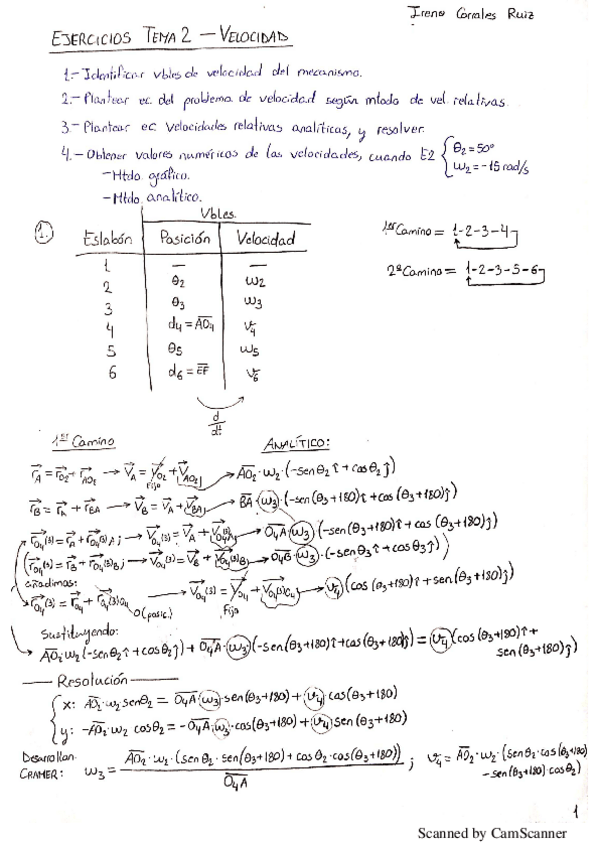 Irene Corrales Ruiz
EJERCICIOS TEMA 2 - VELOCIDAD
1.- Identificar vbles de velocidad del mecanismo.
2.- Plantear ec. del problema de velocidad según mtodo de vel. relativas.
3.- Plantear ec velocidades relativas analíticas, y resolver.
4.- Obtener valores numéricos de las velocidades, cuando E2 { θ₂ = 50°
ω₂ = -15 rad/s
- Mtdo gráfico.
- Mtdo analítico.
1.
Vbles.
Eslabón Posición Velocidad
1 — —
2 θ₂ ω₂
3 θ₃ ω₃
4 d₄ = AO₄ v₄
5 θ₅ ω₅
6 d₆ = EF v₆
d/dt
1er Camino = 1-2-3-4
2º Camino = 1-2-3-5-6
1er Camino ANALÍTICO:
r_A = r_O₂ + r_AO₂ → V_A = V_O₂ + V_AO₂ → AO₂·ω₂·(-senθ₂ î + cosθ₂ ĵ)
Fijo
r_B = r_A + r_BA → V_B = V_A + V_BA → BA·ω₃·(-sen(θ₃+180)î + cos(θ₃+180)ĵ)
r_O₄(3) = r_A + r_O₄(3)A; → V_O₄(3) = V_A + V_O₄(3)A → O₄A·ω₃·(-sen(θ₃+180)î + cos(θ₃+180)ĵ)
(r_O₄(3) = r_B + r_O₄(3)B; → V_O₄(3) = V_B + V_O₄(3)B → O₄B·ω₃·(-senθ₃ î + cosθ₃ ĵ))
añadimos:
r_O₄(3) = r_O₄ + r_O₄(3)O₄ → V_O₄(3) = V_O₄ + V_O₄(3)O₄ → v₄ (cos(θ₃+180)î + sen(θ₃+180)ĵ)
0 (posic.) Fijo
Sustituyendo:
AO₂·ω₂(-senθ₂ î + cosθ₂ ĵ) + O₄A·ω₃(-sen(θ₃+180)î + cos(θ₃+180)ĵ) = v₄(cos(θ₃+180)î +
sen(θ₃+180)ĵ)
Resolución
x: AO₂·ω₂ senθ₂ = O₄A·ω₃·sen(θ₃+180) + v₄·cos(θ₃+180)
y: -AO₂·ω₂ cosθ₂ = -O₄A·ω₃·cos(θ₃+180) + v₄ sen(θ₃+180)
Desarrollan.
CRAMER: ω₃ = AO₂·ω₂·(senθ₂·sen(θ₃+180) + cosθ₂·cos(θ₃+180)) / O₄A ; v₄ = AO₂·ω₂·(senθ₂·cos(θ₃+180)
-sen(θ₃+180)·cosθ₂)
1
Scanned by CamScanner